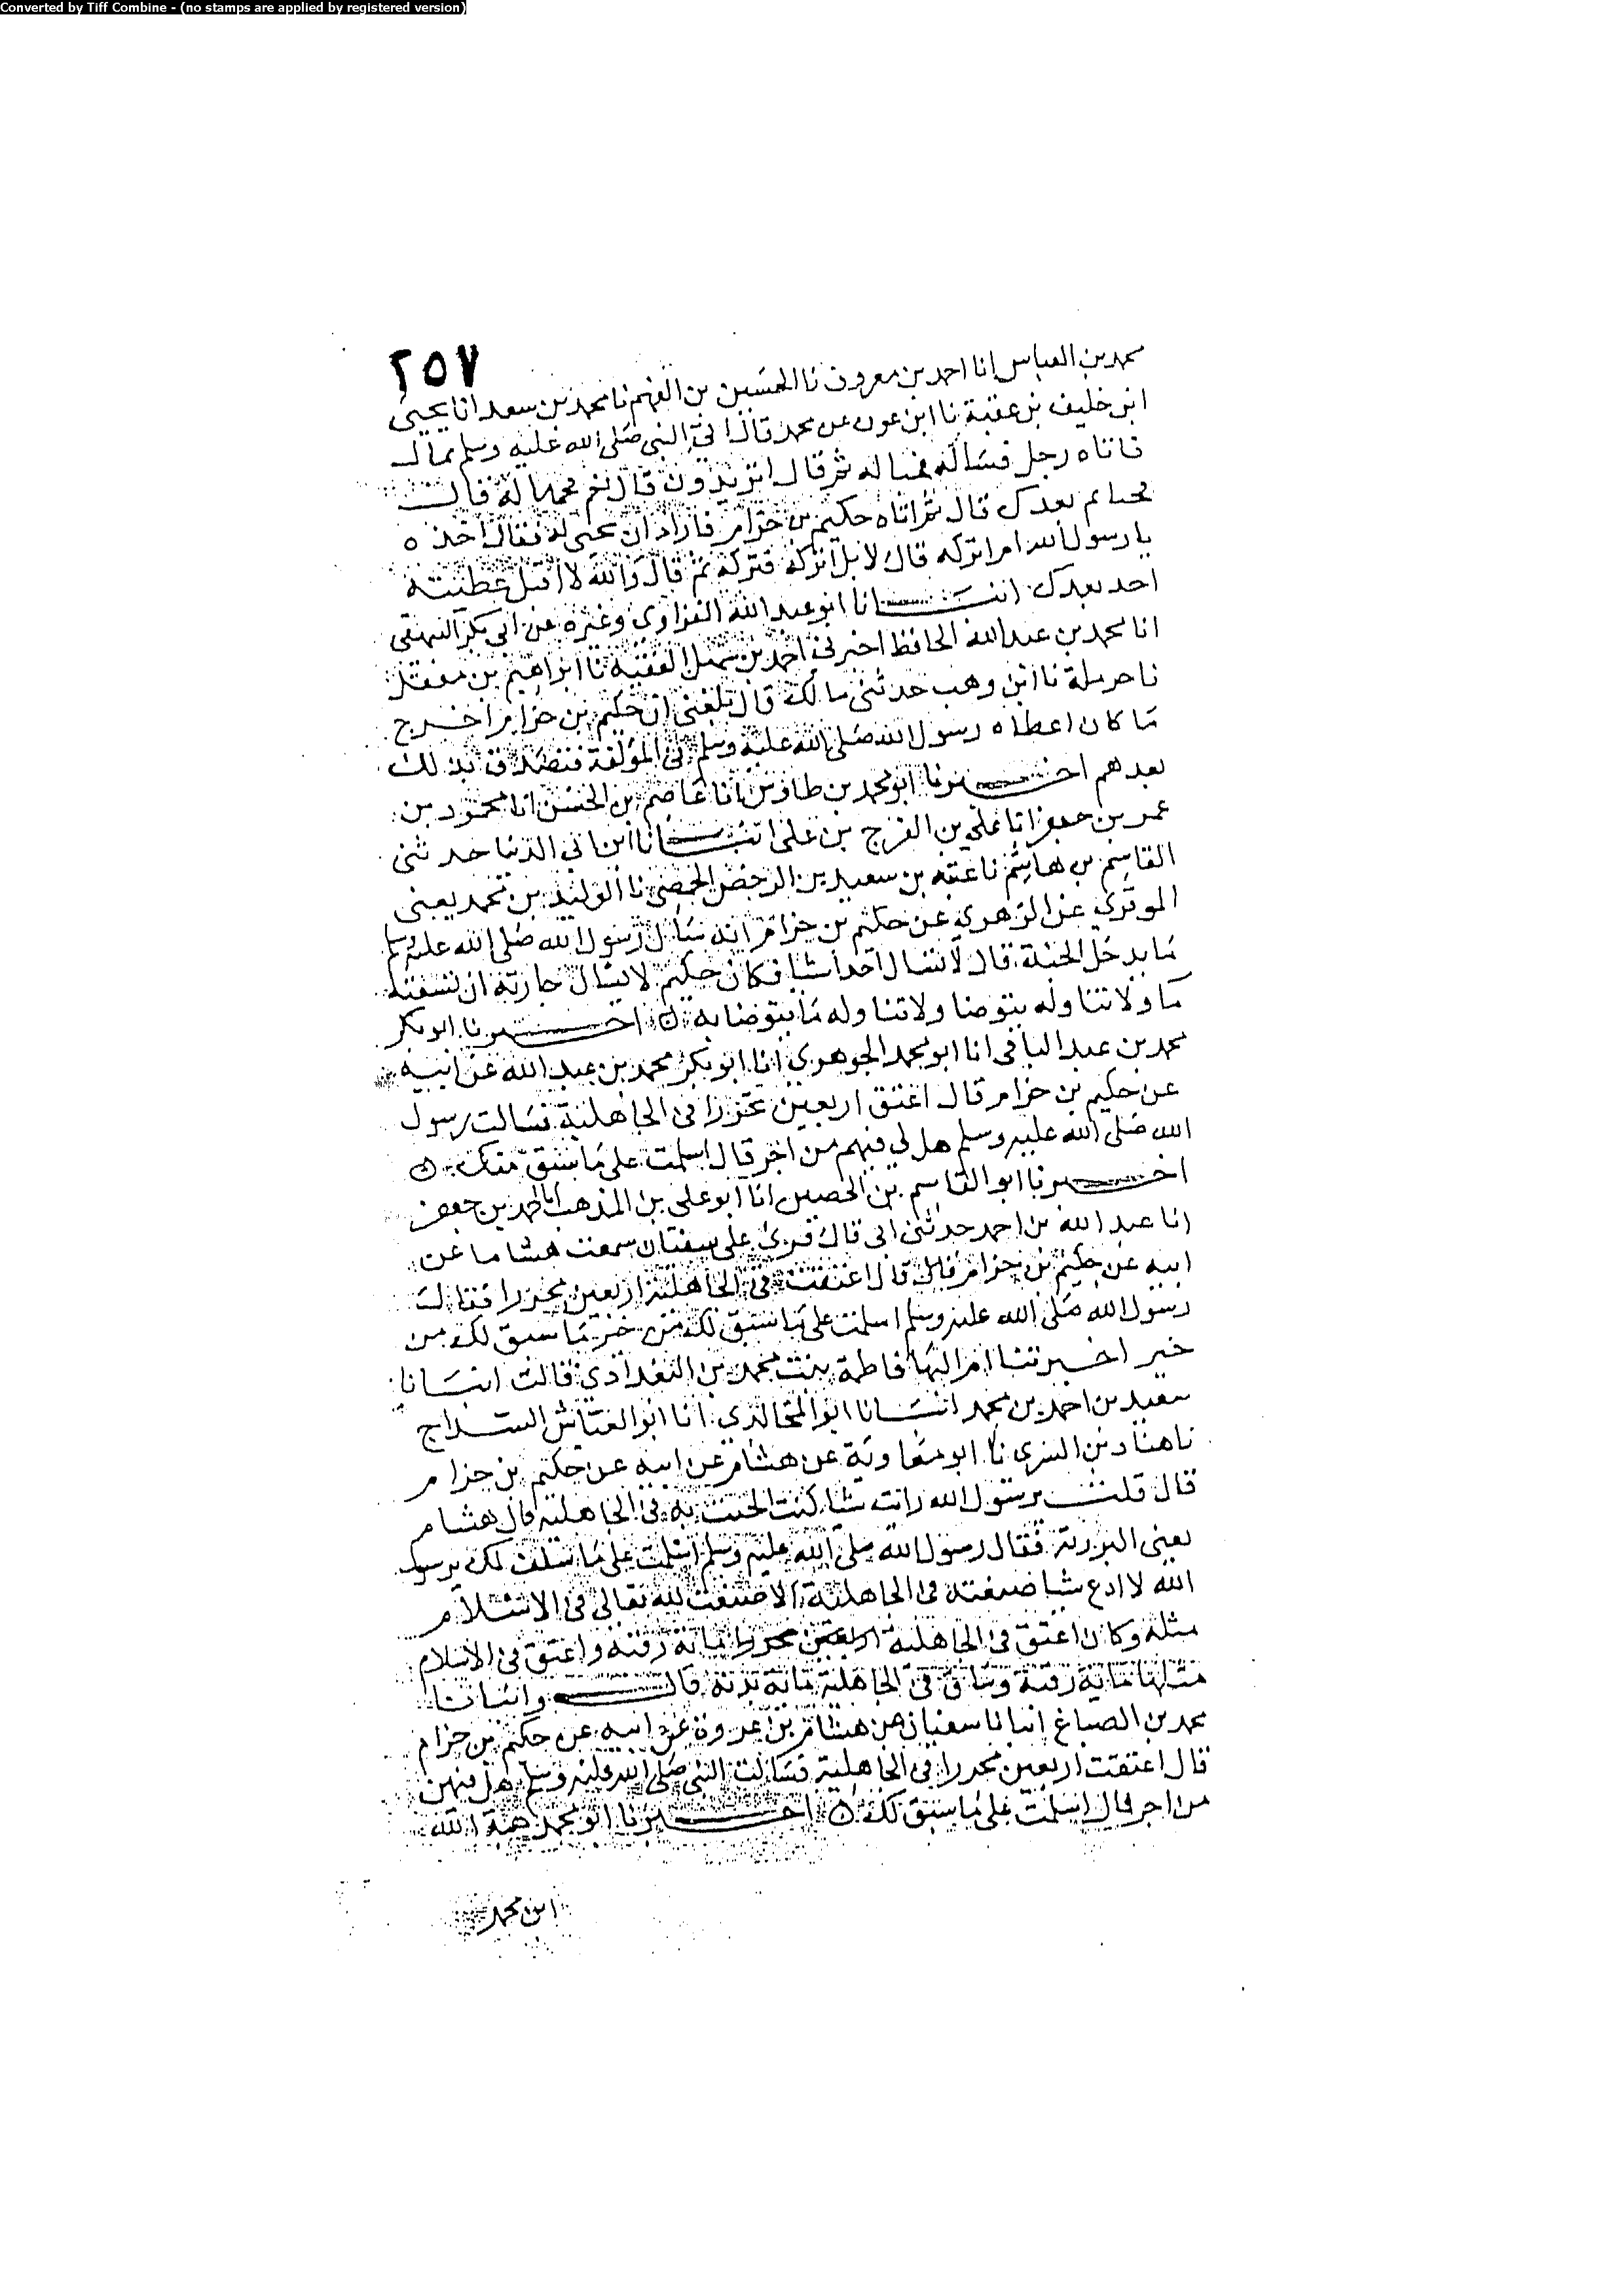 Converted by Tiff Combine - (no stamps are applied by registered version)
٢٥٧
محمد بن العباس انا احمد بن معروف نا الحسين بن الفهم نا محمد بن سعد انا يحيى
ابن خليف بن عقبة نا ابن عون عن محمد قال اتي النبي صلى الله عليه وسلم بمال
فاتاه رجل فساله فحثا له ثم قال اتزيدون قال نعم فحثا له قال
بعدك قال ثم اتاه حكيم بن حزام فاراد ان يحثي له فقال اخذه
يا رسول الله ام اتركه قال لا بل اتركه فتركه ثم قال والله لا اقبل عطية
احد بعدك انبانا ابو عبد الله الفراوي وغيره عن ابي بكر البيهقي
انا محمد بن عبد الله الحافظ اخبرني احمد بن سهل الفقيه نا ابراهيم بن معقل
نا حرملة نا ابن وهب حدثني مالك قال بلغني ان حكيم بن حزام اخرج
ما كان اعطاه رسول الله صلى الله عليه وسلم في المؤلفة فتصدق بذلك
بعدهم اخبرنا ابو محمد بن طاوس انا عاصم بن الحسن انا محمود بن
عمر بن جعفر انا علي بن الفرج بن علي انبانا ابن ابي الدنيا حدثني
القاسم بن هاشم نا عتبه بن سعيد بن الرخص الحمصي نا الوليد بن محمد يعني
الموقري عن الزهري عن حكيم بن حزام انه سال رسول الله صلى الله عليه وسلم
ما يدخل الجنة قال لا تسال احدا شيا فكان حكيم لا يسال جاريته ان تسقيه
ما ولا تناوله يتوضا ولا تناوله ما يتوضا به ن اخبرنا ابو بكر
محمد بن عبد الباقي انا ابو محمد الجوهري انا ابو بكر محمد بن عبد الله عن ابيه
عن حكيم بن حزام قال اعتق اربعين محررا في الجاهلية فسالت رسول
الله صلى الله عليه وسلم هل لي فيهم من اجر قال اسلمت على ما سبق منك ن
اخبرنا ابو القاسم بن الحصين انا ابو علي بن المذهب انا احمد بن جعفر
انا عبد الله بن احمد حدثني ابي قال قرئ على سفيان سمعت هشاما عن
ابيه عن حكيم بن حزام قال قال اعتقت في الجاهلية اربعين محررا فقال
رسول الله صلى الله عليه وسلم اسلمت على ما سبق لك من خير ما سبق لك من
خير اخبرتنا ام البها فاطمة بنت محمد بن البغدادي قالت انبانا
سعيد بن احمد بن محمد انبانا ابو المخالدي انا ابو العباس السراج
نا هناد بن السري نا ابو معاوية عن هشام عن ابيه عن حكيم بن حزام
قال قلت يرسول الله رايت شيا كنت اتحنث به في الجاهلية قال هشام
يعني التبرر به فقال رسول الله صلى الله عليه وسلم اسلمت على ما سلف لك يرسول
الله لا ادع شيا صنعته في الجاهلية الا صنعت لله تعالى في الاسلام
مثله وكان اعتق في الجاهلية اربعين محررا مائة رقبة واعتق في الاسلام
مثلها مائة رقبة وساق في الجاهلية مائة بدنة قال وانبانا
محمد بن الصباغ انبانا سفيان عن هشام بن عروة عن ابيه عن حكيم بن حزام
قال اعتقت اربعين محررا في الجاهلية فسالت النبي صلى الله عليه وسلم هل فيهن
من اجر قال اسلمت على ما سبق لك ن اخبرنا ابو محمد هبة الله
ابن محمد